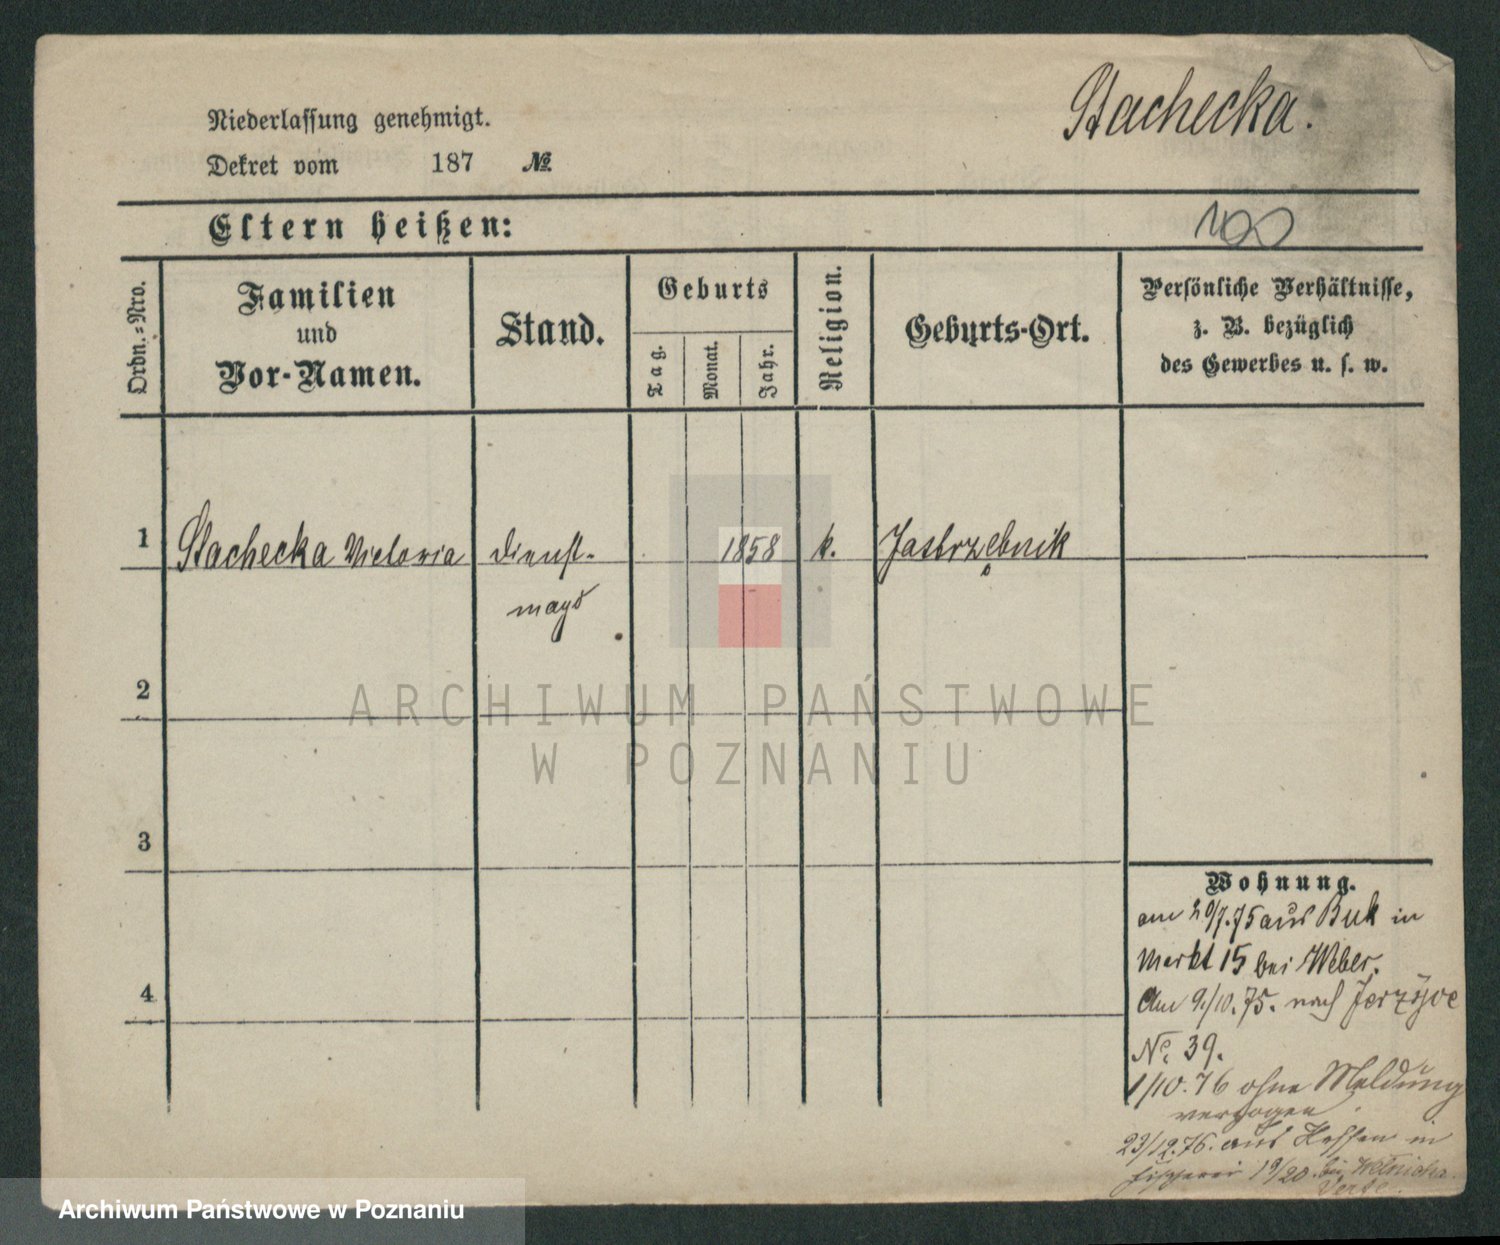 Stachecka.
Niederlassung genehmigt.
Dekret vom 187 №
Eltern heißen:
Ordn.-Nro.
Familien
und
Vor-Namen.
Stand.
Geburts
Tag.
Monat.
Jahr.
Religion.
Geburts-Ort.
Persönliche Verhältnisse,
z. B. bezüglich
des Gewerbes u. s. w.
1 Stachecka Victoria Dienst- 1858 k. Jastrzębnik
magd
2
3
4
Wohnung.
am 20/7.75 aus Buk in
Markt 15 bei Weber.
Am 9./10.75. nach
No. 39.
1/10.76 ohne Meldung
verzogen.
23/12.76. aus in
Fischerei 19/20. bei
ARCHIWUM PAŃSTWOWE
W POZNANIU
Archiwum Państwowe w Poznaniu